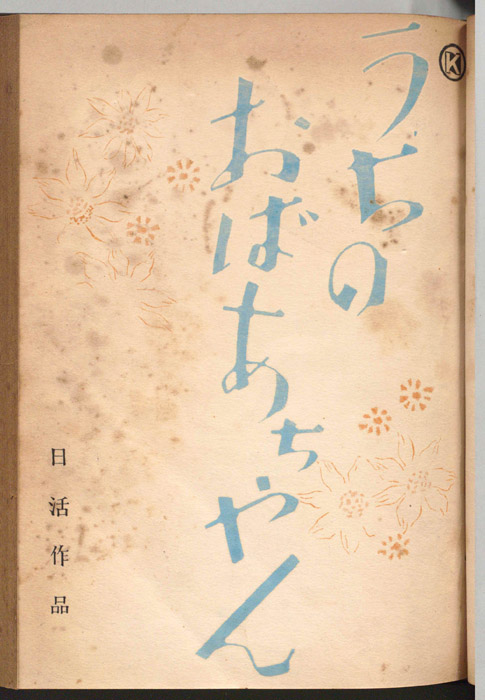 うちの
おばあちゃん
日活作品
K